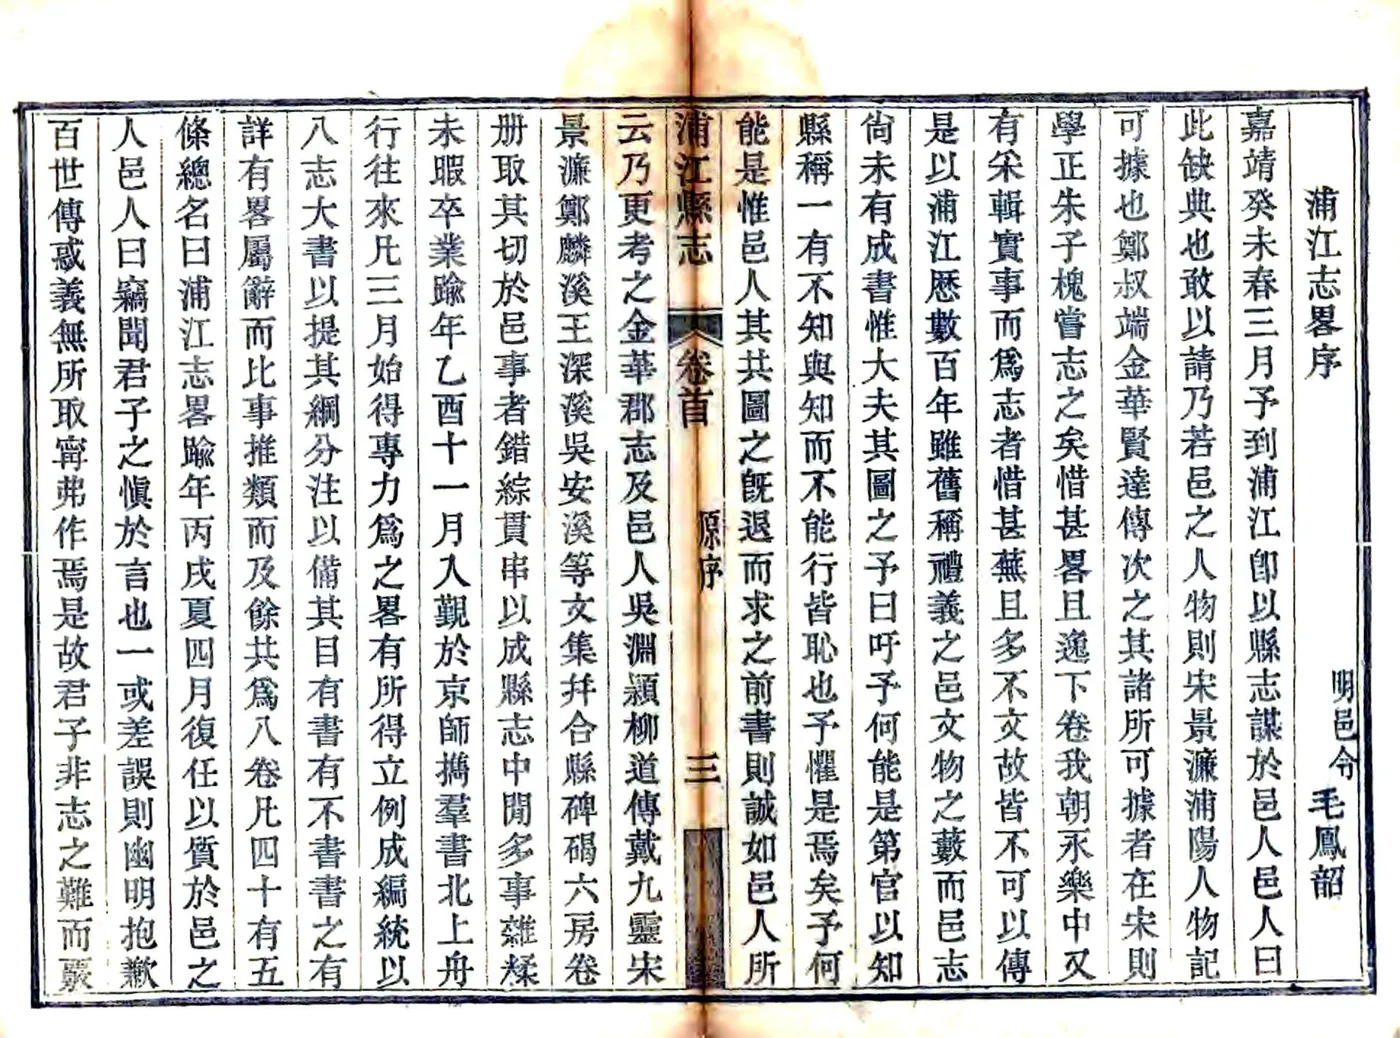 浦江志畧序
明邑令毛鳳韶
嘉靖癸未春三月予到浦江卽以縣志謀於邑人邑人曰
此缺典也敢以請乃若邑之人物則宋景濂浦陽人物記
可據也鄭叔端金華賢達傳次之其諸所可據者在宋則
學正朱子槐嘗志之矣惜甚畧且逸下卷我朝永樂中又
有采輯實事而爲志者惜甚蕪且多不文故皆不可以傳
是以浦江厯數百年雖舊稱禮義之邑文物之藪而邑志
尙未有成書惟大夫其圖之予曰吁予何能是第官以知
縣稱一有不知與知而不能行皆恥也予懼是焉矣予何
能是惟邑人其共圖之旣退而求之前書則誠如邑人所
浦江縣志 卷首 原序 三
云乃更考之金華郡志及邑人吳淵潁柳道傳戴九靈宋
景濂鄭麟溪王深溪吳安溪等文集幷合縣碑碣六房卷
册取其切於邑事者錯綜貫串以成縣志中閒多事雜糅
未暇卒業踰年乙酉十一月入覲於京師擕羣書北上舟
行往來凡三月始得專力爲之畧有所得立例成編統以
八志大書以提其綱分注以備其目有書有不書書之有
詳有畧屬辭而比事推類而及餘共爲八卷凡四十有五
條總名曰浦江志畧踰年丙戌夏四月復任以質於邑之
人邑人曰竊聞君子之愼於言也一或差誤則幽明抱歉
百世傳惑義無所取寗弗作焉是故君子非志之難而覈